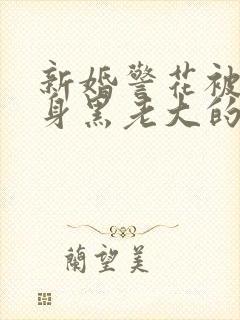 新婚警花被
身黑老大的
蘭望美